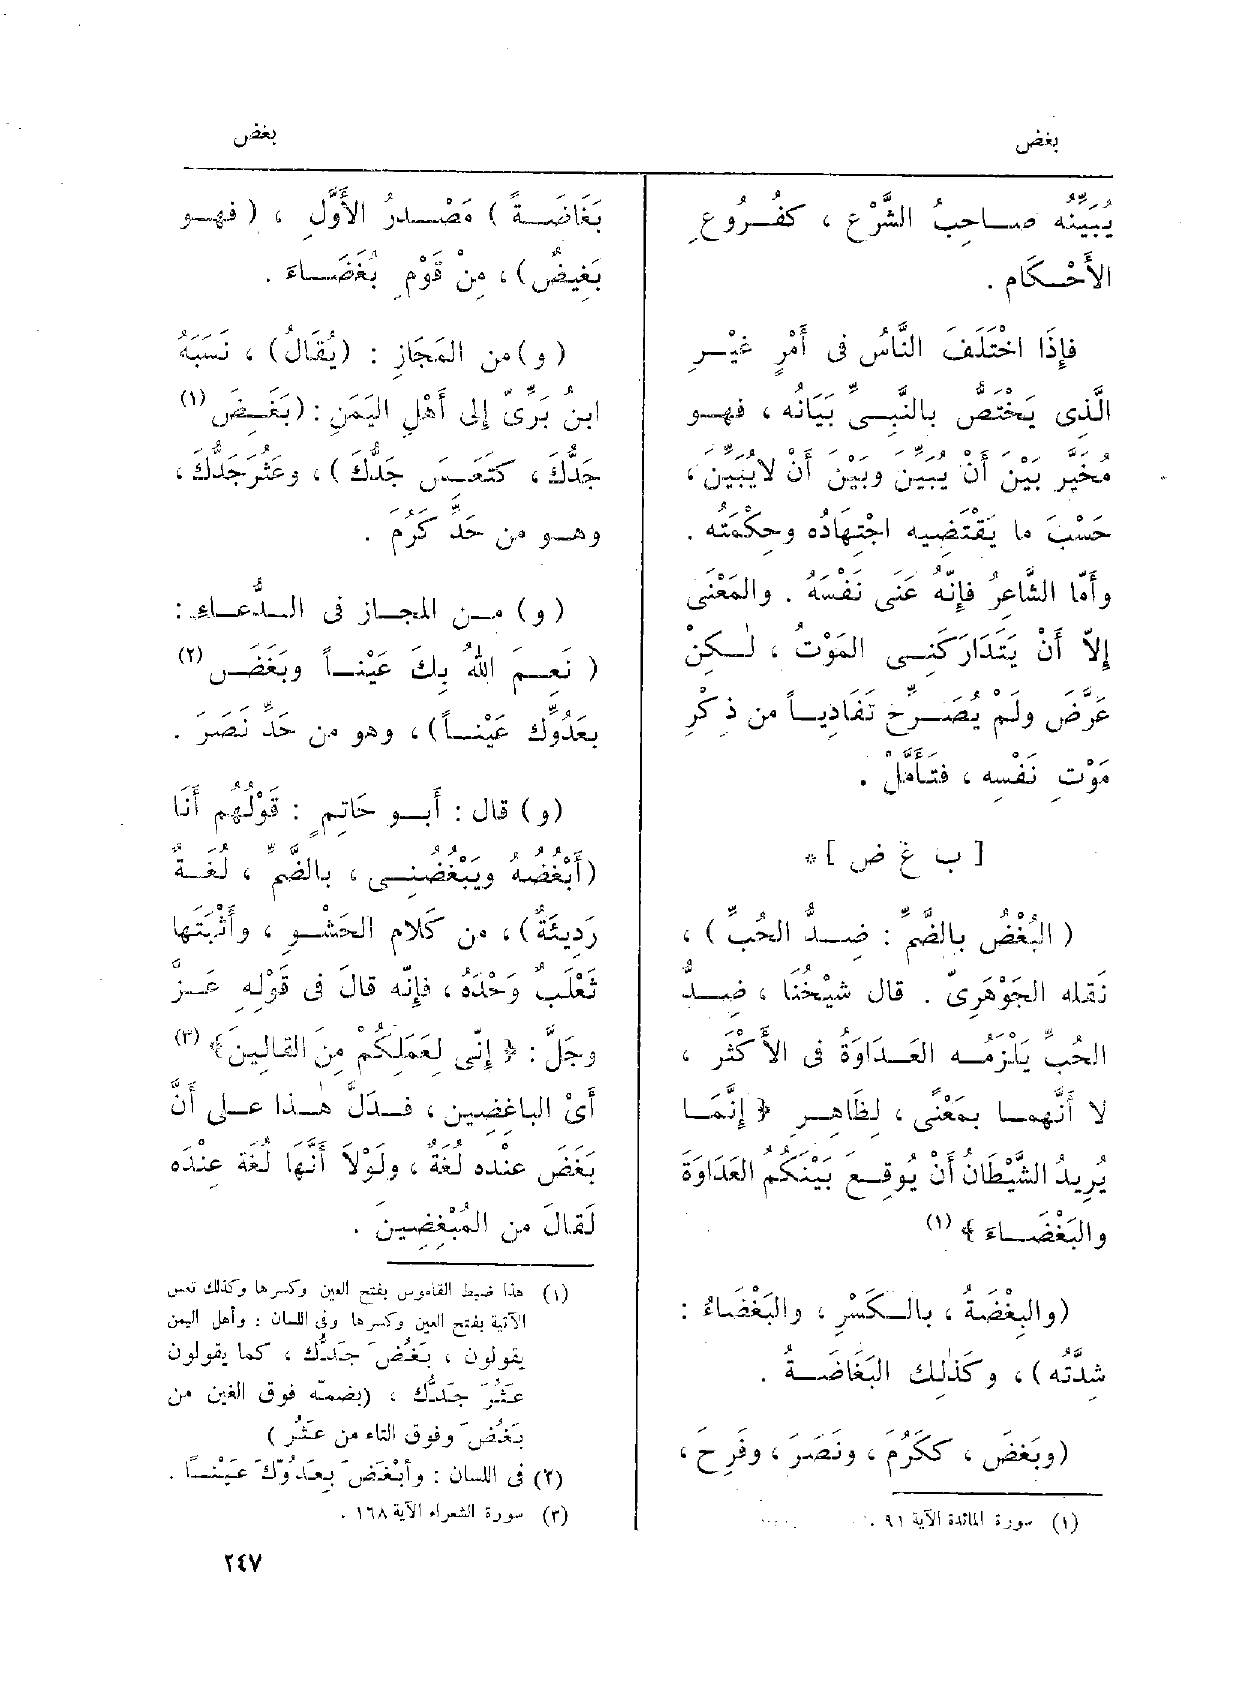 بغض
بغض
يُبَيِّنُه صاحِبُ الشَّرْعِ ، كفُرُوعِ
الأَحْكَامِ .
فإِذَا اخْتَلَفَ النَّاسُ فى أَمْرٍ غَيْرِ
الَّذِى يَخْتَصُّ بالنَّبِىِّ بَيَانُه ، فهو
مُخَيَّر بَيْنَ أَنْ يُبَيِّنَ وبَيْنَ أَنْ لايُبَيِّنَ ،
حَسْبَ ما يَقْتَضِيه اجْتِهَادُه وحِكْمَتُه .
وأَمّا الشَّاعِرُ فإِنَّهُ عَنَى نَفْسَهُ . والمَعْنَى
إِلاّ أَنْ يَتَدَارَكَنِى المَوْتُ ، لٰكِنْ
عَرَّضَ ولَمْ يُصَرِّحْ تَفَادِياً من ذِكْرِ
مَوْتِ نَفْسِه ، فتَأَمَّلْ .
[ ب غ ض ] *
( البُغْضُ بالضَّمِّ : ضِدُّ الحُبِّ ) ،
نَقله الجَوْهَرِىّ . قال شَيْخُنَا ، ضِدُّ
الحُبِّ يَلْزَمُه العَدَاوَةُ فى الأَكْثَر ،
لا أَنَّهما بمَعْنًى ، لِظَاهِرِ ﴿ إِنَّمَا
يُرِيدُ الشَّيْطَانُ أَنْ يُوقِعَ بَيْنَكُمُ العَدَاوَةَ
والبَغْضَاءَ ﴾ (١)
(والبِغْضَةُ ، بالكَسْرِ ، والبَغْضَاءُ :
شِدَّتُه ) ، وكَذٰلِك البَغَاضَةُ .
(وبَغُضَ ، ككَرُمَ ، ونَصَرَ ، وفَرِحَ ،
(١) سورة المائدة الآية ٩١ .
بَغَاضَةً ) مَصْدرُ الأَوَّلِ ، ( فهو
بَغِيضٌ ) ، مِنْ قَوْمٍ بُغَضَاءَ .
( و)من المَجَازِ : (يُقَالُ) ، نَسَبَهُ
ابنُ بَرِّىّ إِلى أَهْلِ اليَمَنِ : (بَغَضَ (١)
جَدُّكَ ، كتَعَسَ جَدُّكَ ) ، وعَثَرَجَدُّكَ ،
وهو من حَدِّ كَرُمَ .
( و) من المجاز فى الدُّعاءِ :
( نَعِمَ اللهُ بِكَ عَيْناً وبَغَضَ (٢)
بعَدُوِّكَ عَيْناً) ، وهو من حَدِّ نَصَرَ .
(و) قال : أَبو حَاتِمٍ : قَوْلُهُم أَنَا
(أَبْغُضُهُ ويَبْغُضُنِى ، بالضَّمِّ ، لُغَةٌ
رَدِيئَةٌ) ، من كَلامِ الحَشْوِ ، وأَثْبَتَها
ثَعْلَبٌ وَحْدَهُ ، فإِنّه قالَ فى قَوْلِهِ عَزَّ
وجَلَّ : ﴿ إِنِّى لِعَمَلِكُمْ مِنَ القَالِينَ﴾ (٣)
أَىْ الباغِضِين ، فدَلَّ هٰذا على أَنَّ
بَغَضَ عِنْده لُغَةٌ ، ولَوْلاَ أَنَّها لُغَة عِنْدَه
لَقالَ من المُبْغِضِينَ .
(١) هذا ضبط القاموس بفتح العين وكسرها وكذلك تعس
الآتية بفتح العين وكسرها وفى اللسان : وأهل اليمن
يقولون ، بَغُضَ جَدُّك ، كما يقولون
عَثُرَ جَدُّك ، (بضمّه فوق الغين من
بَغُضَ وفوق الثاء من عَثُر )
(٢) فى اللسان : وأَبْغَضَ بِعَدُوِّكَ عَيْنـًا .
(٣) سورة الشعراء الآية ١٦٨ .
٢٤٧